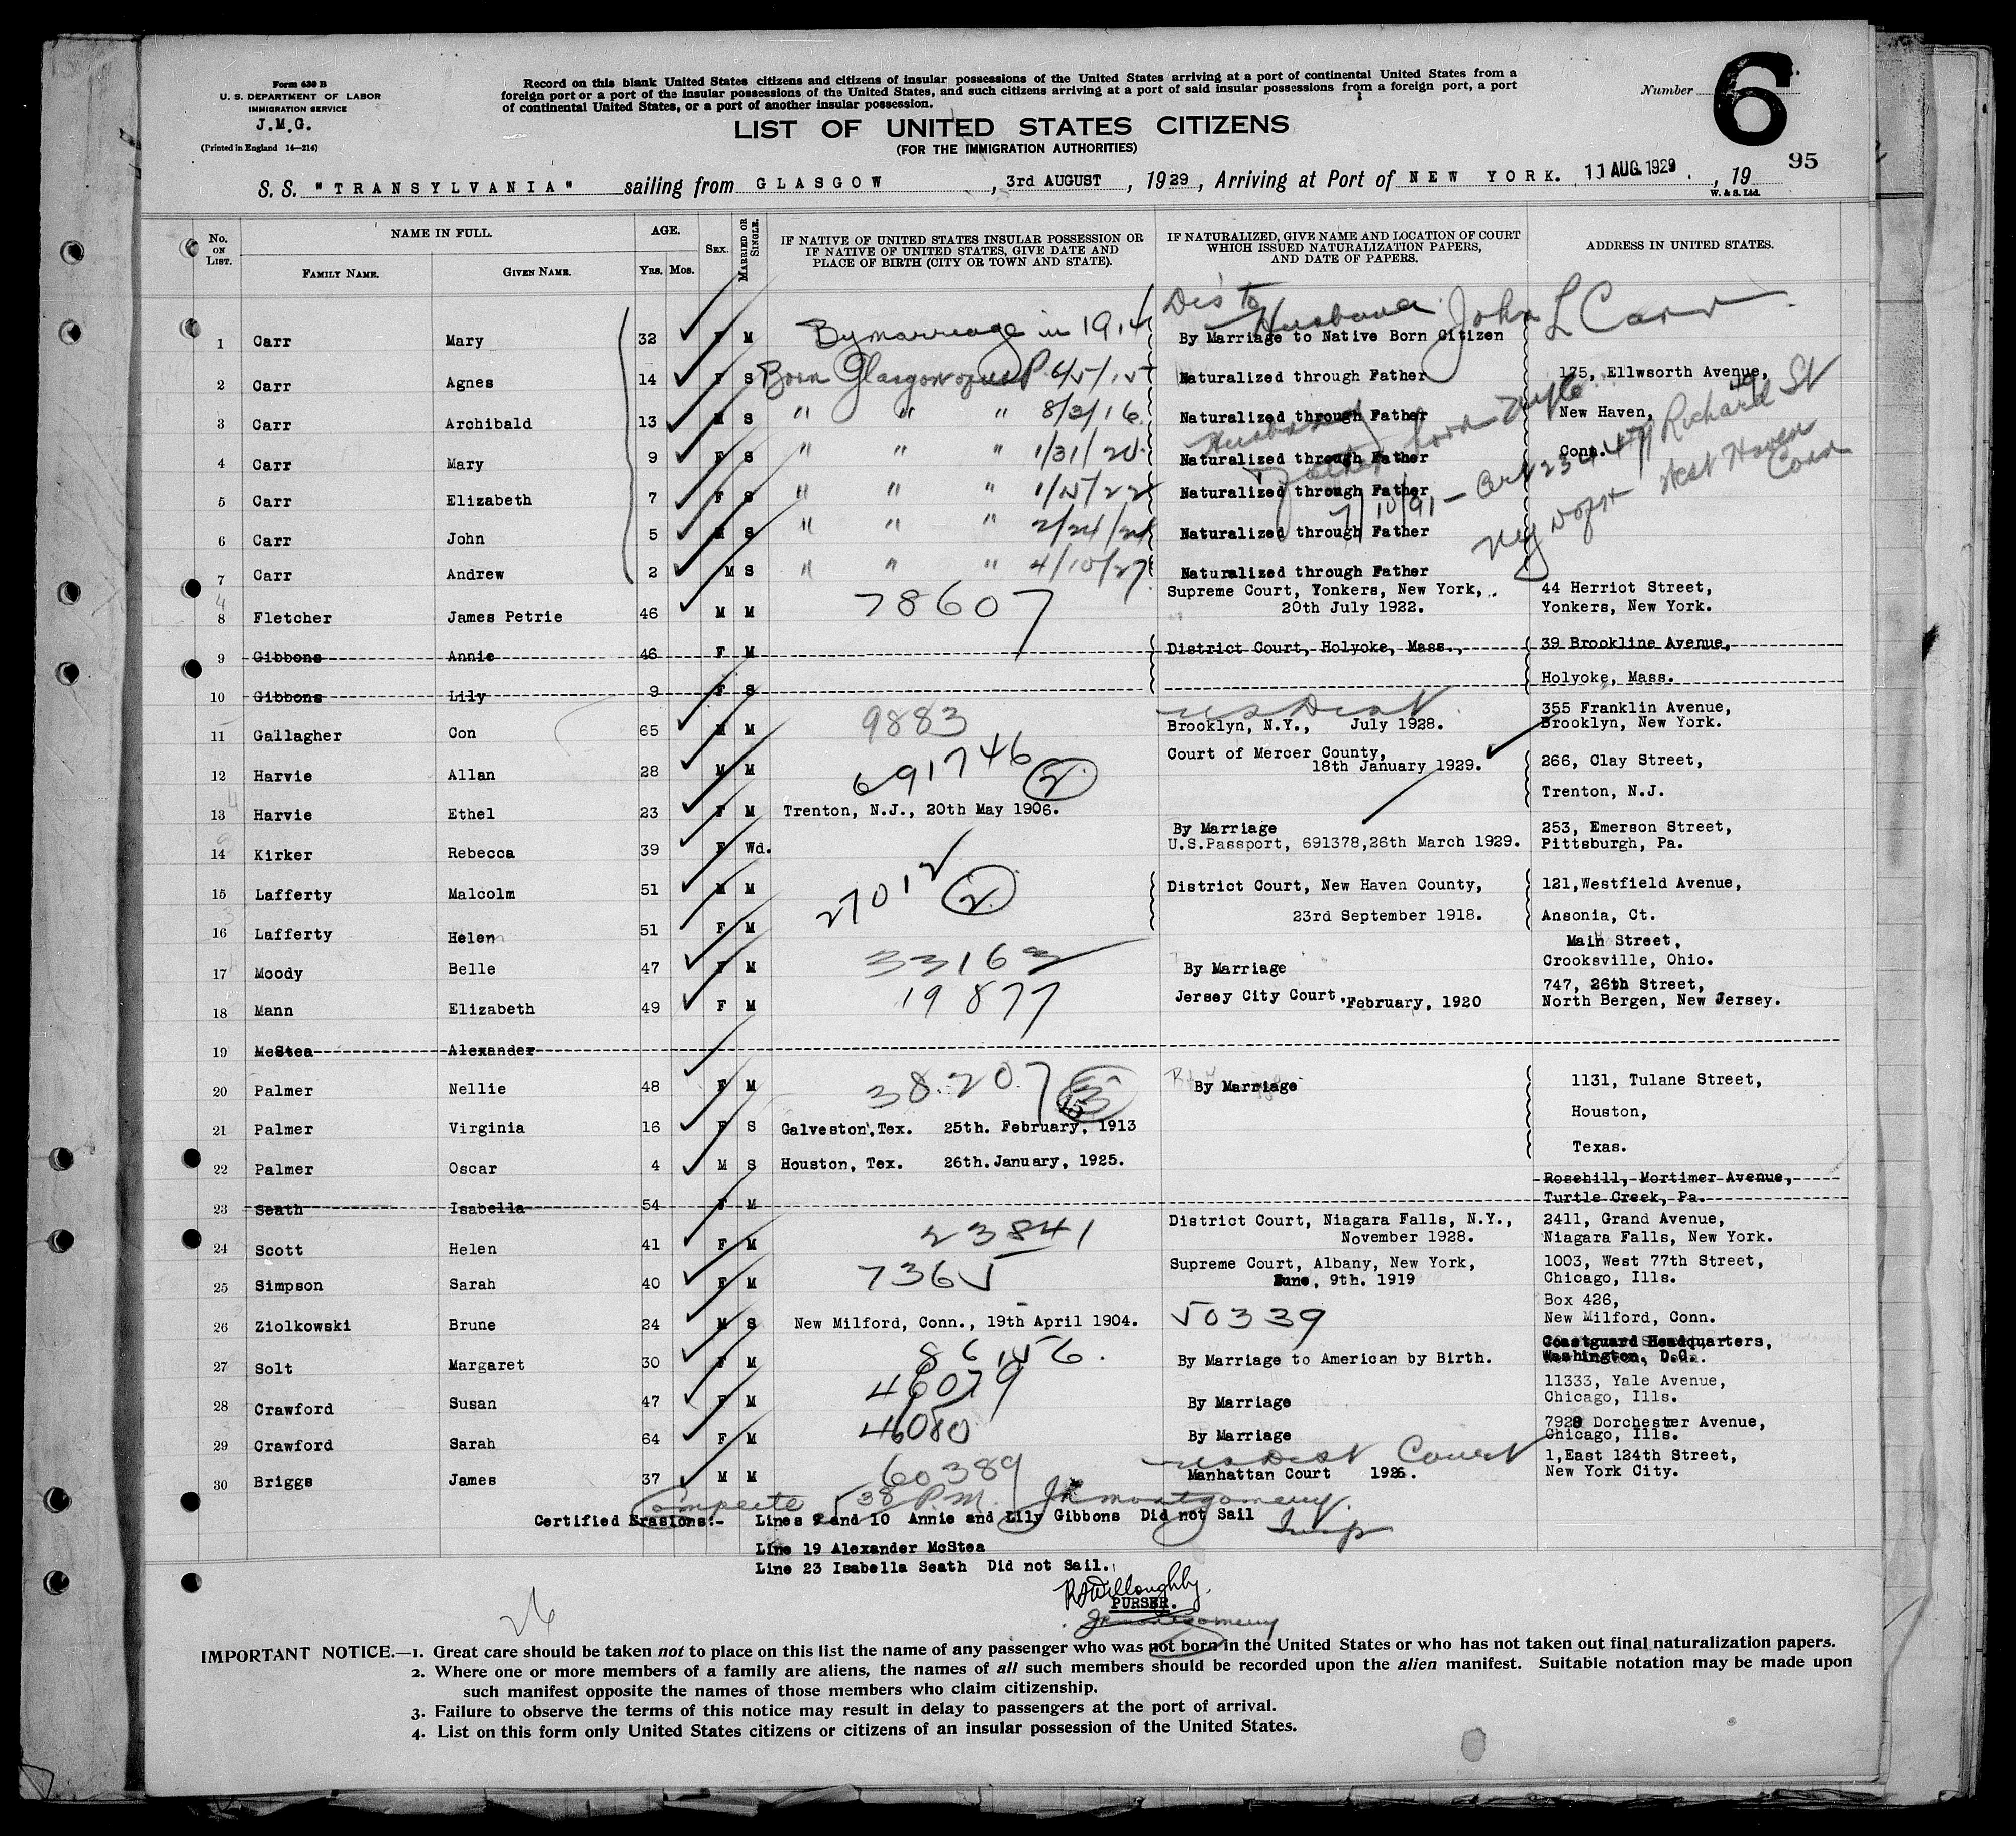 Form 630 B
U. S. DEPARTMENT OF LABOR
IMMIGRATION SERVICE
J.M.G.
(Printed in England 14—214)
Record on this blank United States citizens and citizens of insular possessions of the United States arriving at a port of continental United States from a
foreign port or a port of the insular possessions of the United States, and such citizens arriving at a port of said insular possessions from a foreign port, a port
of continental United States, or a port of another insular possession.
Number 6
LIST OF UNITED STATES CITIZENS
(FOR THE IMMIGRATION AUTHORITIES)
95
S.S. "TRANSYLVANIA" sailing from GLASGOW, 3rd AUGUST, 1929, Arriving at Port of NEW YORK. 11 AUG. 1929, 19
W. & S. Ltd.
No. ON LIST. NAME IN FULL. FAMILY NAME. GIVEN NAME. AGE. YRS. MOS. SEX. MARRIED OR SINGLE. IF NATIVE OF UNITED STATES INSULAR POSSESSION OR IF NATIVE OF UNITED STATES, GIVE DATE AND PLACE OF BIRTH (CITY OR TOWN AND STATE). IF NATURALIZED, GIVE NAME AND LOCATION OF COURT WHICH ISSUED NATURALIZATION PAPERS, AND DATE OF PAPERS. ADDRESS IN UNITED STATES.
Dis to Husband John L Carr
1 Carr Mary 32 F M By marriage in 1914 By Marriage to Native Born Citizen
2 Carr Agnes 14 F S Born Glasgow 6/5/15 Naturalized through Father 175, Ellwsorth Avenue,
3 Carr Archibald 13 M S " " " 8/3/16 Naturalized through Father New Haven,
4 Carr Mary 9 F S " " " 1/31/20 Naturalized through Father Conn.
Husband Richard St
5 Carr Elizabeth 7 F S " " " 1/15/22 Naturalized through Father
7/10/91 West Haven Conn
6 Carr John 5 M S " " " 2/24/24 Naturalized through Father
7 Carr Andrew 2 M S " " " 4/10/27 Naturalized through Father
8 Fletcher James Petrie 46 M M 78607 Supreme Court, Yonkers, New York, 20th July 1922. 44 Herriot Street, Yonkers, New York.
9 Gibbons Annie 46 F M District Court, Holyoke, Mass., 39 Brookline Avenue,
10 Gibbons Lily 9 F S Holyoke, Mass.
11 Gallagher Con 65 M M 9883 US Dist Brooklyn, N.Y., July 1928. 355 Franklin Avenue, Brooklyn, New York.
12 Harvie Allan 28 M M 691746 (2) Court of Mercer County, 18th January 1929. 266, Clay Street,
13 Harvie Ethel 23 F M Trenton, N.J., 20th May 1906. Trenton, N.J.
14 Kirker Rebecca 39 F Wd. By Marriage U.S.Passport, 691378,26th March 1929. 253, Emerson Street, Pittsburgh, Pa.
15 Lafferty Malcolm 51 M M 27012 (2) District Court, New Haven County, 121,Westfield Avenue,
16 Lafferty Helen 51 F M 23rd September 1918. Ansonia, Ct.
17 Moody Belle 47 F M 33163 By Marriage Main Street, Crooksville, Ohio.
18 Mann Elizabeth 49 F M 19877 Jersey City Court, February, 1920 747, 26th Street, North Bergen, New Jersey.
19 McStea Alexander
20 Palmer Nellie 48 F M 38207 (3) By Marriage 1131, Tulane Street,
21 Palmer Virginia 16 F S Galveston,Tex. 25th. February, 1913 Houston,
22 Palmer Oscar 4 M S Houston, Tex. 26th.January, 1925. Texas.
23 Seath Isabella 54 F M Rosehill, Mortimer Avenue, Turtle Creek, Pa.
24 Scott Helen 41 F M 23841 District Court, Niagara Falls, N.Y., November 1928. 2411, Grand Avenue, Niagara Falls, New York.
25 Simpson Sarah 40 F M 7365 Supreme Court, Albany, New York, June, 9th. 1919 1003, West 77th Street, Chicago, Ills.
26 Ziolkowski Brune 24 M S New Milford, Conn., 19th April 1904. 50339 Box 426, New Milford, Conn.
27 Solt Margaret 30 F M 86156. By Marriage to American by Birth. Coastguard Headquarters, Washington, D.C.
28 Crawford Susan 47 F M 46079 By Marriage 11333, Yale Avenue, Chicago, Ills.
29 Crawford Sarah 64 F M 46080 By Marriage 7928 Dorchester Avenue, Chicago, Ills.
30 Briggs James 37 M M 60389 US Dist Court Manhattan Court 1926. 1,East 124th Street, New York City.
Complete 538 P.M. JR Montgomery. Insp
Certified Erasions:- Lines 9 and 10 Annie and Lily Gibbons Did not Sail
Line 19 Alexander McStea
Line 23 Isabella Seath Did not Sail.
RA Willoughby.
PURSER.
JR Montgomery
26
IMPORTANT NOTICE.—1. Great care should be taken not to place on this list the name of any passenger who was not born in the United States or who has not taken out final naturalization papers.
2. Where one or more members of a family are aliens, the names of all such members should be recorded upon the alien manifest. Suitable notation may be made upon
such manifest opposite the names of those members who claim citizenship.
3. Failure to observe the terms of this notice may result in delay to passengers at the port of arrival.
4. List on this form only United States citizens or citizens of an insular possession of the United States.